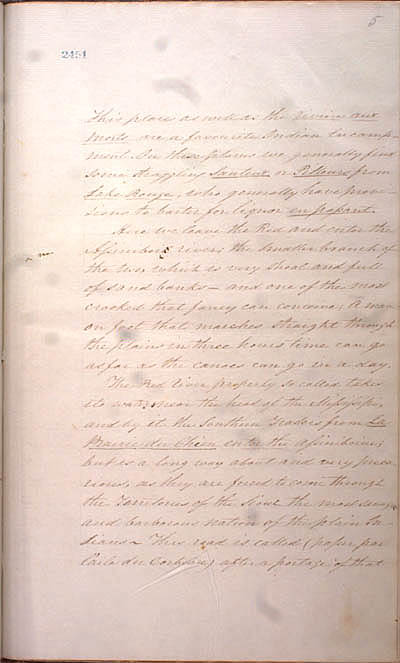 5
2451
This place as well as the rivière aux
Morts are a favourite Indian Encamp-
ment. In these places we generally find
some straggling Saulteux or Pilleurs from
Lake Rouge, who generally have prov-
isions to barter for liquor en passant.
Here we leave the Red and enter the
Assiniboil river, the smaller branch of
the two which is very shoal and full
of sand banks — and one of the most
crooked that fancy can conceive; A man
on foot that marches straight through
the plains in three hours time can go
as far as the canoes can go in a day.
The Red river properly so called takes
its waters near the head of the Missisipi
and by it the Southern Traders from La
Prairie du Chien enter the assiniboine;
but is a long way about and very preca-
rious, as they are forced to come through
the Territories of the Sioux the most savage
and barbarous nation of the plain In-
dians — This road is called (passer par
after a portage of that